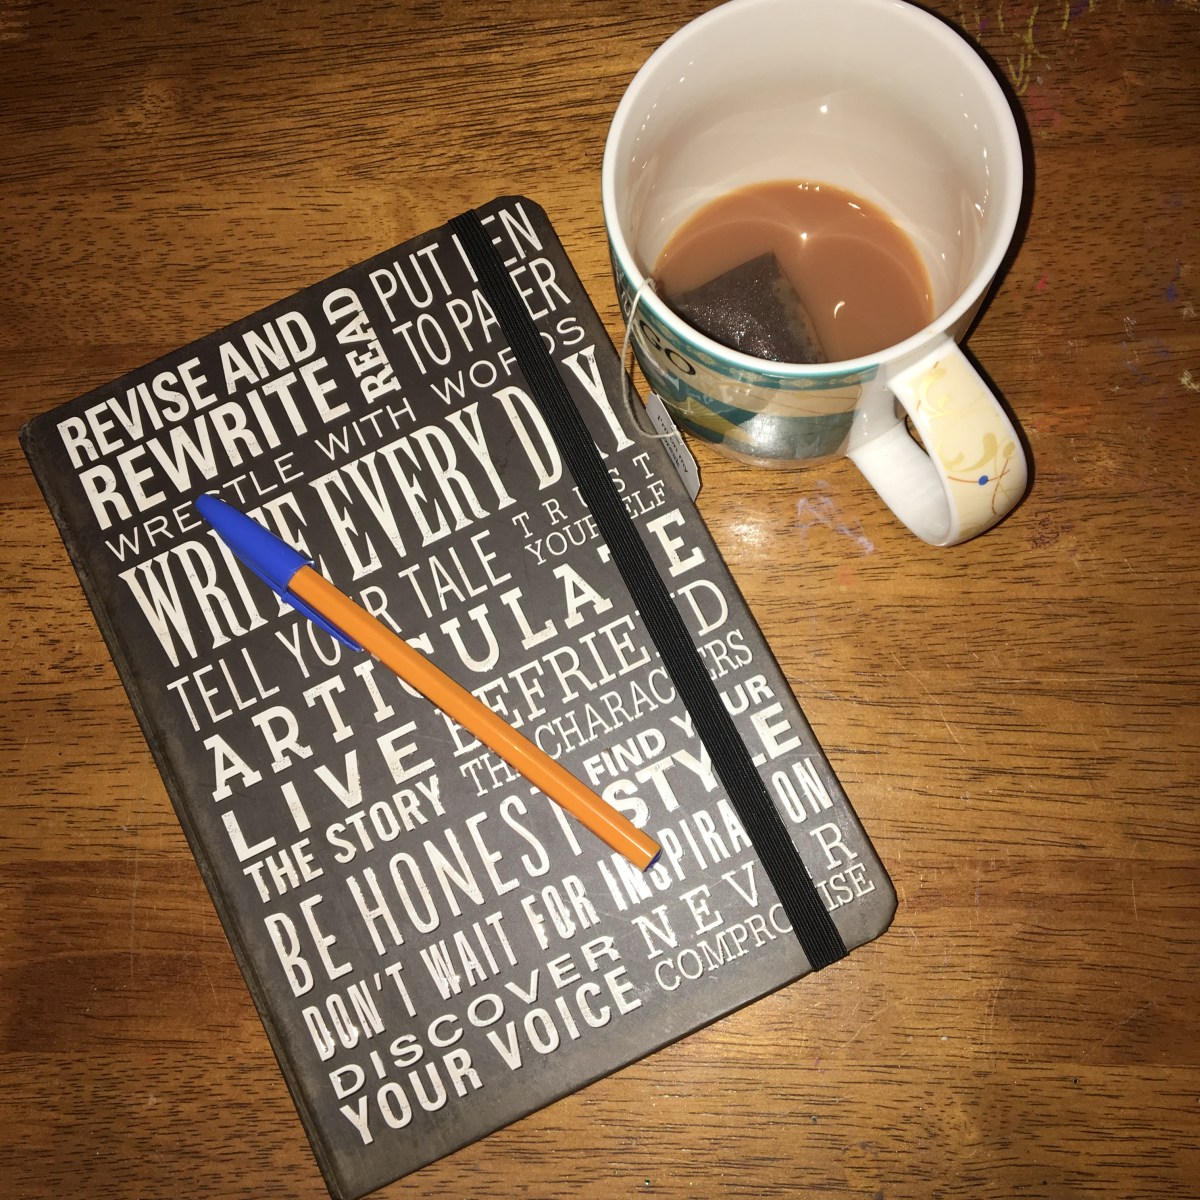 REVISE AND
REWRITE
READ
PUT PEN
TO PAPER
WRESTLE WITH WORDS
WRITE EVERY DAY
TELL YOUR TALE
TRUST
YOURSELF
ARTICULATE
LIVE
THE STORY
BEFRIEND
THE CHARACTERS
FIND YOUR
STYLE
BE HONEST
DON'T WAIT FOR INSPIRATION
DISCOVER
YOUR VOICE
NEVER
COMPROMISE
GO